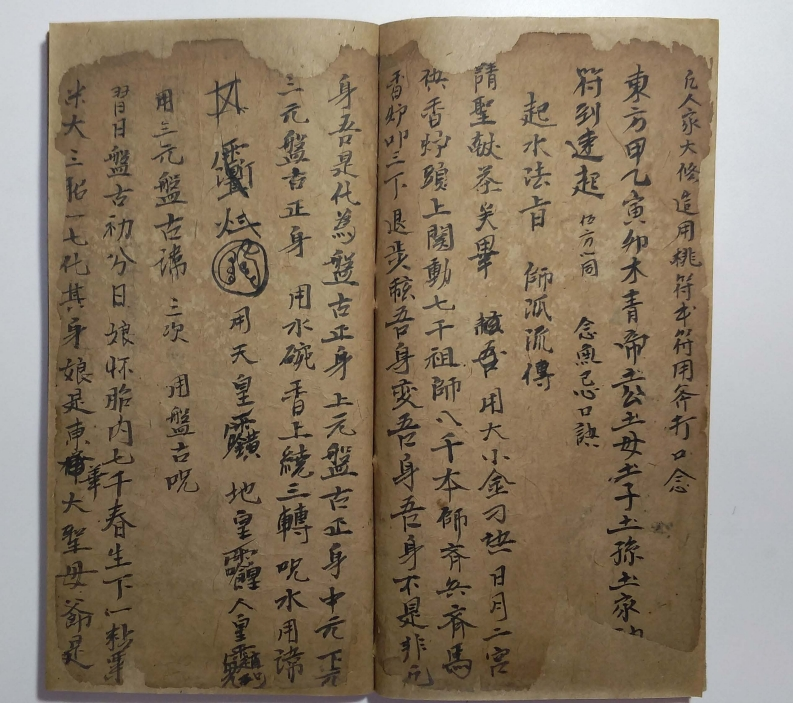 凡人家大修造用桃符本符用斧打口念
東方甲乙寅卯木青帝土公土母土子土孫土家
符到速起 口念
起水法旨 師派流傳
請聖献茶矣畢 吾用大小金刀 日月二宮
香炉頭上閗動七千祖師八千本師齊兵齊馬
香炉叩三下退步 吾身变吾身吾身不是非凡
身吾是化為盤古正身上元盤古正身中元下元
三元盤古正身 用水碗香上繞三轉 呪水用諱
用天皇 地皇 人皇
用三元盤古諱 三次 用盤古呪
習日盤古初分日娘怀胎内七千春生下一粒
米大三 一七化其身娘是 華大聖母爺是